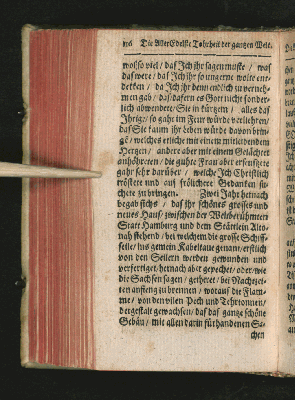 196 Die AllerEdelste Tohrheit der gantzen Welt.
wohl so viel / daß Jch ihr sagen muste / was
das were / daß Jch ihr so ungerne wolte ent-
dekken / da Jch ihr denn endlich zu verneh-
men gab / daß dafern es Gott nicht sonder-
lich abwendete / Sie in kurtzen / alles das
Jhrige / so gahr im Feur würde verliehren /
daß Sie kaum ihr Leben würde davon brin-
gen / welches etliche mit einem mitleidendem
Hertzen / andere aber mit einem Gelächter
anhöhreten / die guhte Frau aber erseuftzete
gahr sehr darüber / welche Jch Christlich
tröstete und auf frölichere Gedanken su-
chete zu bringen. Zwei Jahr hernach
begab sichs / daß ihr schönes grosses und
neues Haus / zwischen der Weltberühmten
Statt Hamburg und dem Stättlein Alto-
nah stehend / bei welchem die grosse Schiff-
seile / ins gemein Kabeltaue genant / erstlich
von den Seilern werden gewunden und
verfertiget / hernach aber gepechet / oder / wie
die Sachsen sagen / getheret / bei Nachtzei-
ten anfieng zu brennen / worauß die Flam-
me / von den vilen Pech und Tehrtonnen /
dergestalt gewachsen / daß das gantze schöne
Gebäu / mit allen darin fürhandenen Sa-
chen